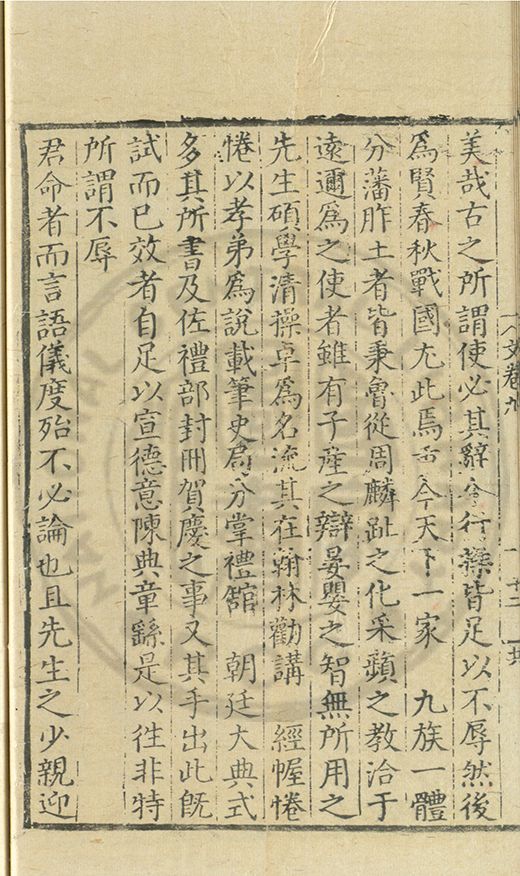 美哉古之所謂使必其辭令行藝皆足以不辱然後
爲賢春秋戰國尤此焉 今天下一家　九族一體
分藩胙土者皆秉魯從周麟趾之化采蘋之教洽于
遠邇爲之使者雖有子產之辯晏嬰之智無所用之
先生碩學清操卓爲名流其在翰林勸講　經幄惓
惓以孝弟爲說載筆史局分掌禮館　朝廷大典式
多其所書及佐禮部封冊賀慶之事又其手出此旣
試而已效者自足以宣德意陳典章繇是以徃非特
所謂不辱
君命者而言語儀度殆不必論也且先生之少親迎
文卷九
十二